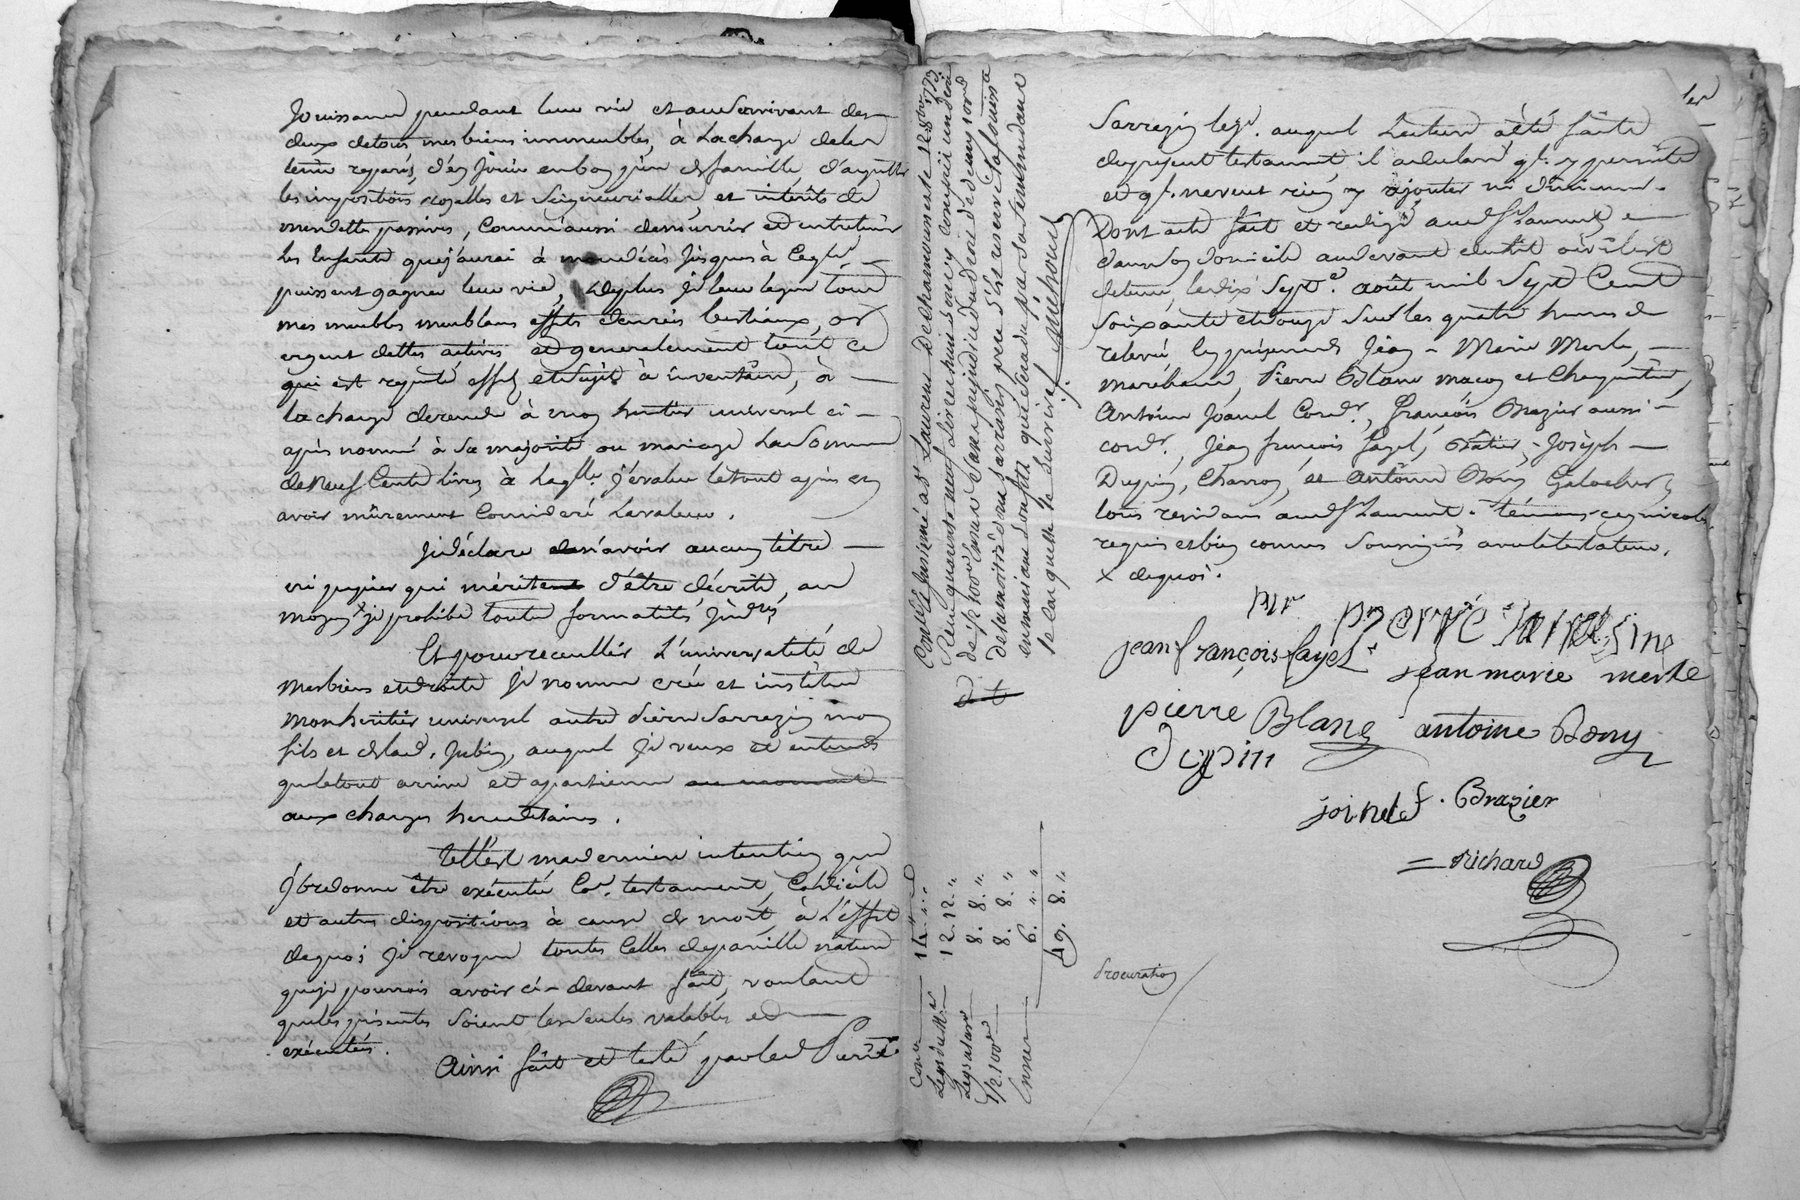 Jouissance pendant leur vie et au survivant des
deux de tous mes biens immeubles, à la charge de les
tenir réparés, d'en Jouir en bon père de famille, d'acquitter
les impositions royalles et Seigneurialles, et intérêts de
mes dettes passives, comm'aussi de nourrir et entretenir
les Enfants que j'aurai à mon décès Jusques à ce qls
puissent gagner leur vie, deplus Je leur legue tous
mes meubles meublans effets denrées bestiaux, or
argent dettes actives et generalement tout ce
qui est reputé effet et sujet à inventaire, à
la charge de rendre à mon heritier universel ci-
après nommé à sa majorité ou mariage la Somme
de Neuf Cents livres à laqlle. J'évalue le tout après en
avoir mûrement Consideré la valeur.
Je déclare n'avoir aucun titre
ni papier qui mérite d'être décrits, au
moyen x je prohibe toutes formalités Judres
Et pour recueillir L'universalité de
mes biens et droits Je nomme crée et institue
mon heritier universel autre Pierre Sarrazin mon
fils et de lad. Jubin, auquel Je veux et entends
que le tout arrive et apartienne au moment
aux charges hereditaires.
Tell'est ma derniere intention que
J'ordonne être exécutée Coe. testament, Codicile
et autres dispositions à cause de mort, à L'effet
de quoi Je revoque toutes Celles de pareille nature
que je pourrois avoir ci-devant fait, voulant
que les présentes Soient les Seules valables et
exécutées.
Ainsi fait et testé par led Pierre
Conlle & Insinué à St Laurent De chamousset le 12 8bre 1773.
Reçu quarante neuf Livres huit sous y compris un dem
de ip. 100e. Casuel Sans prejudice du droit de demy 100e
de la moitié d'une Sarrasin pere s'il reserve la Jouissance
en mariant son fils qui sera du par sa femme dans
le cas qu'elle le survive. Mishoud
Conlle 14. "
Legs du Mr 12. 12. "
Legs a la sœur 8. 8. "
1/2. 100e 8. 8. "
Insion 6. " "
49. 8. "
Sarrazin test. auquel Lecture a été faite
du present testament, il a declaré ql. y persiste
et ql. ne veut rien y ajouter ni diminuer.
Dont acte fait et redigé aud St Laurent
dans son domicile au devant duetit
de terre, le dix Septe. août mil Sept Cent
Soixante et douze Sur les quatre heures de
relevée les présences Jean-Marie Merle,
maréchand, Pierre Blanc maçon et Charpentier,
Antoine Joanel Cordr, François Brazier aussi
cordr., Jean francois fayel, Dupin, Joseph
Dupin, Charron, et Antoine Bony Galochier
tous residans aud St Laurent. témoins
requis et bien connus Soussignés avec le testateur.
x de quoi.
Mr Pierre Sarrasin
jean françois fayel
jean marie merle
pierre Blanc antoine Bony
Dupin
joinel f. Brazier
Richard
Procuration